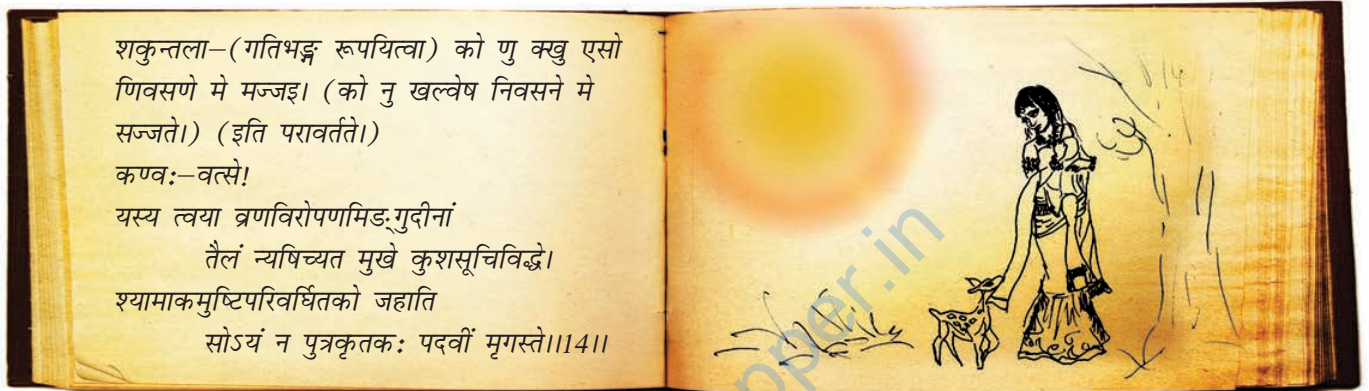 शकुन्तला–(गतिभङ्ग रूपयित्वा) को णु क्खु एसो
णिवसणे मे मज्जइ। (को नु खल्वेष निवसने मे
सज्जते।) (इति परावर्तते।)
कण्वः–वत्से!
यस्य त्वया व्रणविरोपणमिङ्गुदीनां
तैलं न्यषिच्यत मुखे कुशसूचिविद्धे।
श्यामाकमुष्टिपरिवर्धितको जहाति
सोऽयं न पुत्रकृतकः पदवीं मृगस्ते।।14।।
pper.in